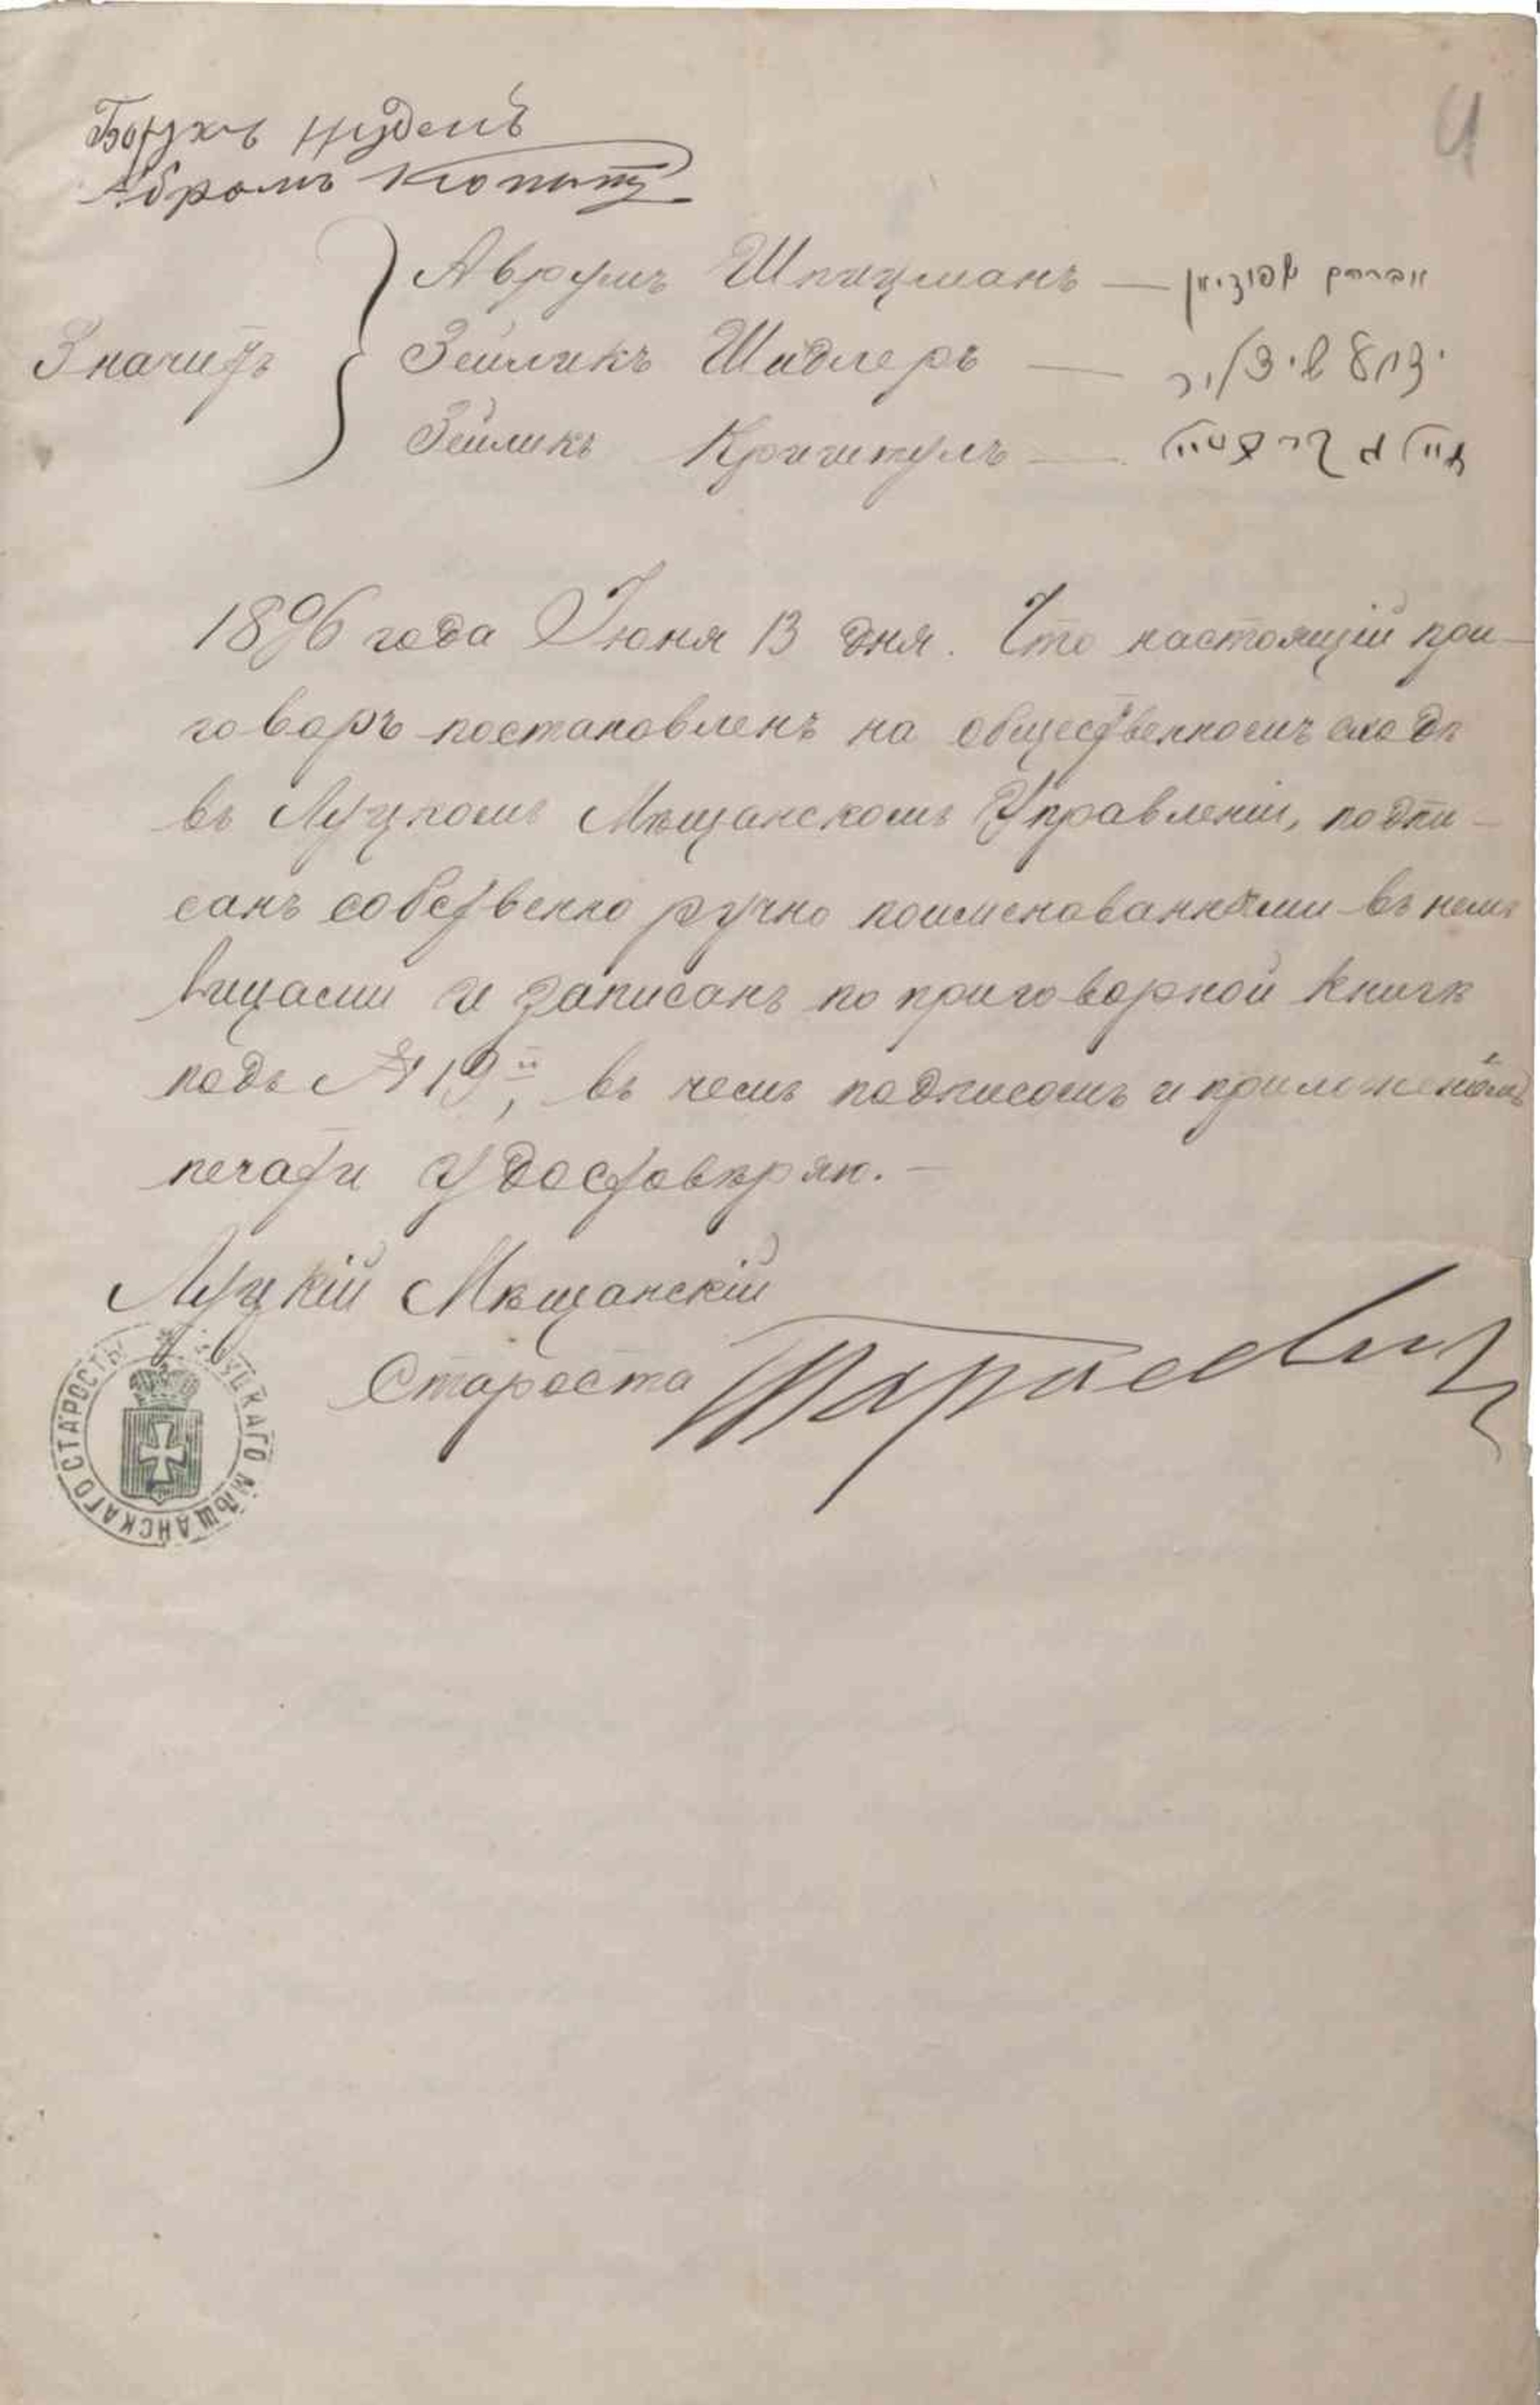 Борухъ Нудель
Абрамъ Копыт
4
Аврумъ Шпицманъ — אברהם שפיצמאן
Значитъ
Зейликъ Шидлеръ —
Зейликъ Криштулъ —
1896 года Іюня 13 дня. Что настоящій при-
говоръ постановленъ на общественномъ сходѣ
въ Луцкомъ Мѣщанскомъ Управленіи, подпи-
санъ собственно ручно поименованными въ немъ
лицами и записанъ по приговорной книгѣ
подъ № 19й, въ чемъ подписомъ и приложеніемъ
печати удостовѣряю.—
Луцкій Мѣщанскій
Староста Тарасевич
ЛУЦКАГО МѢЩАНСКАГО СТАРОСТЫ